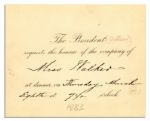 The President
requests the honor of the company of
Miss Walker
at dinner on Thursday March
Eighth at 7½ o'clock
1883